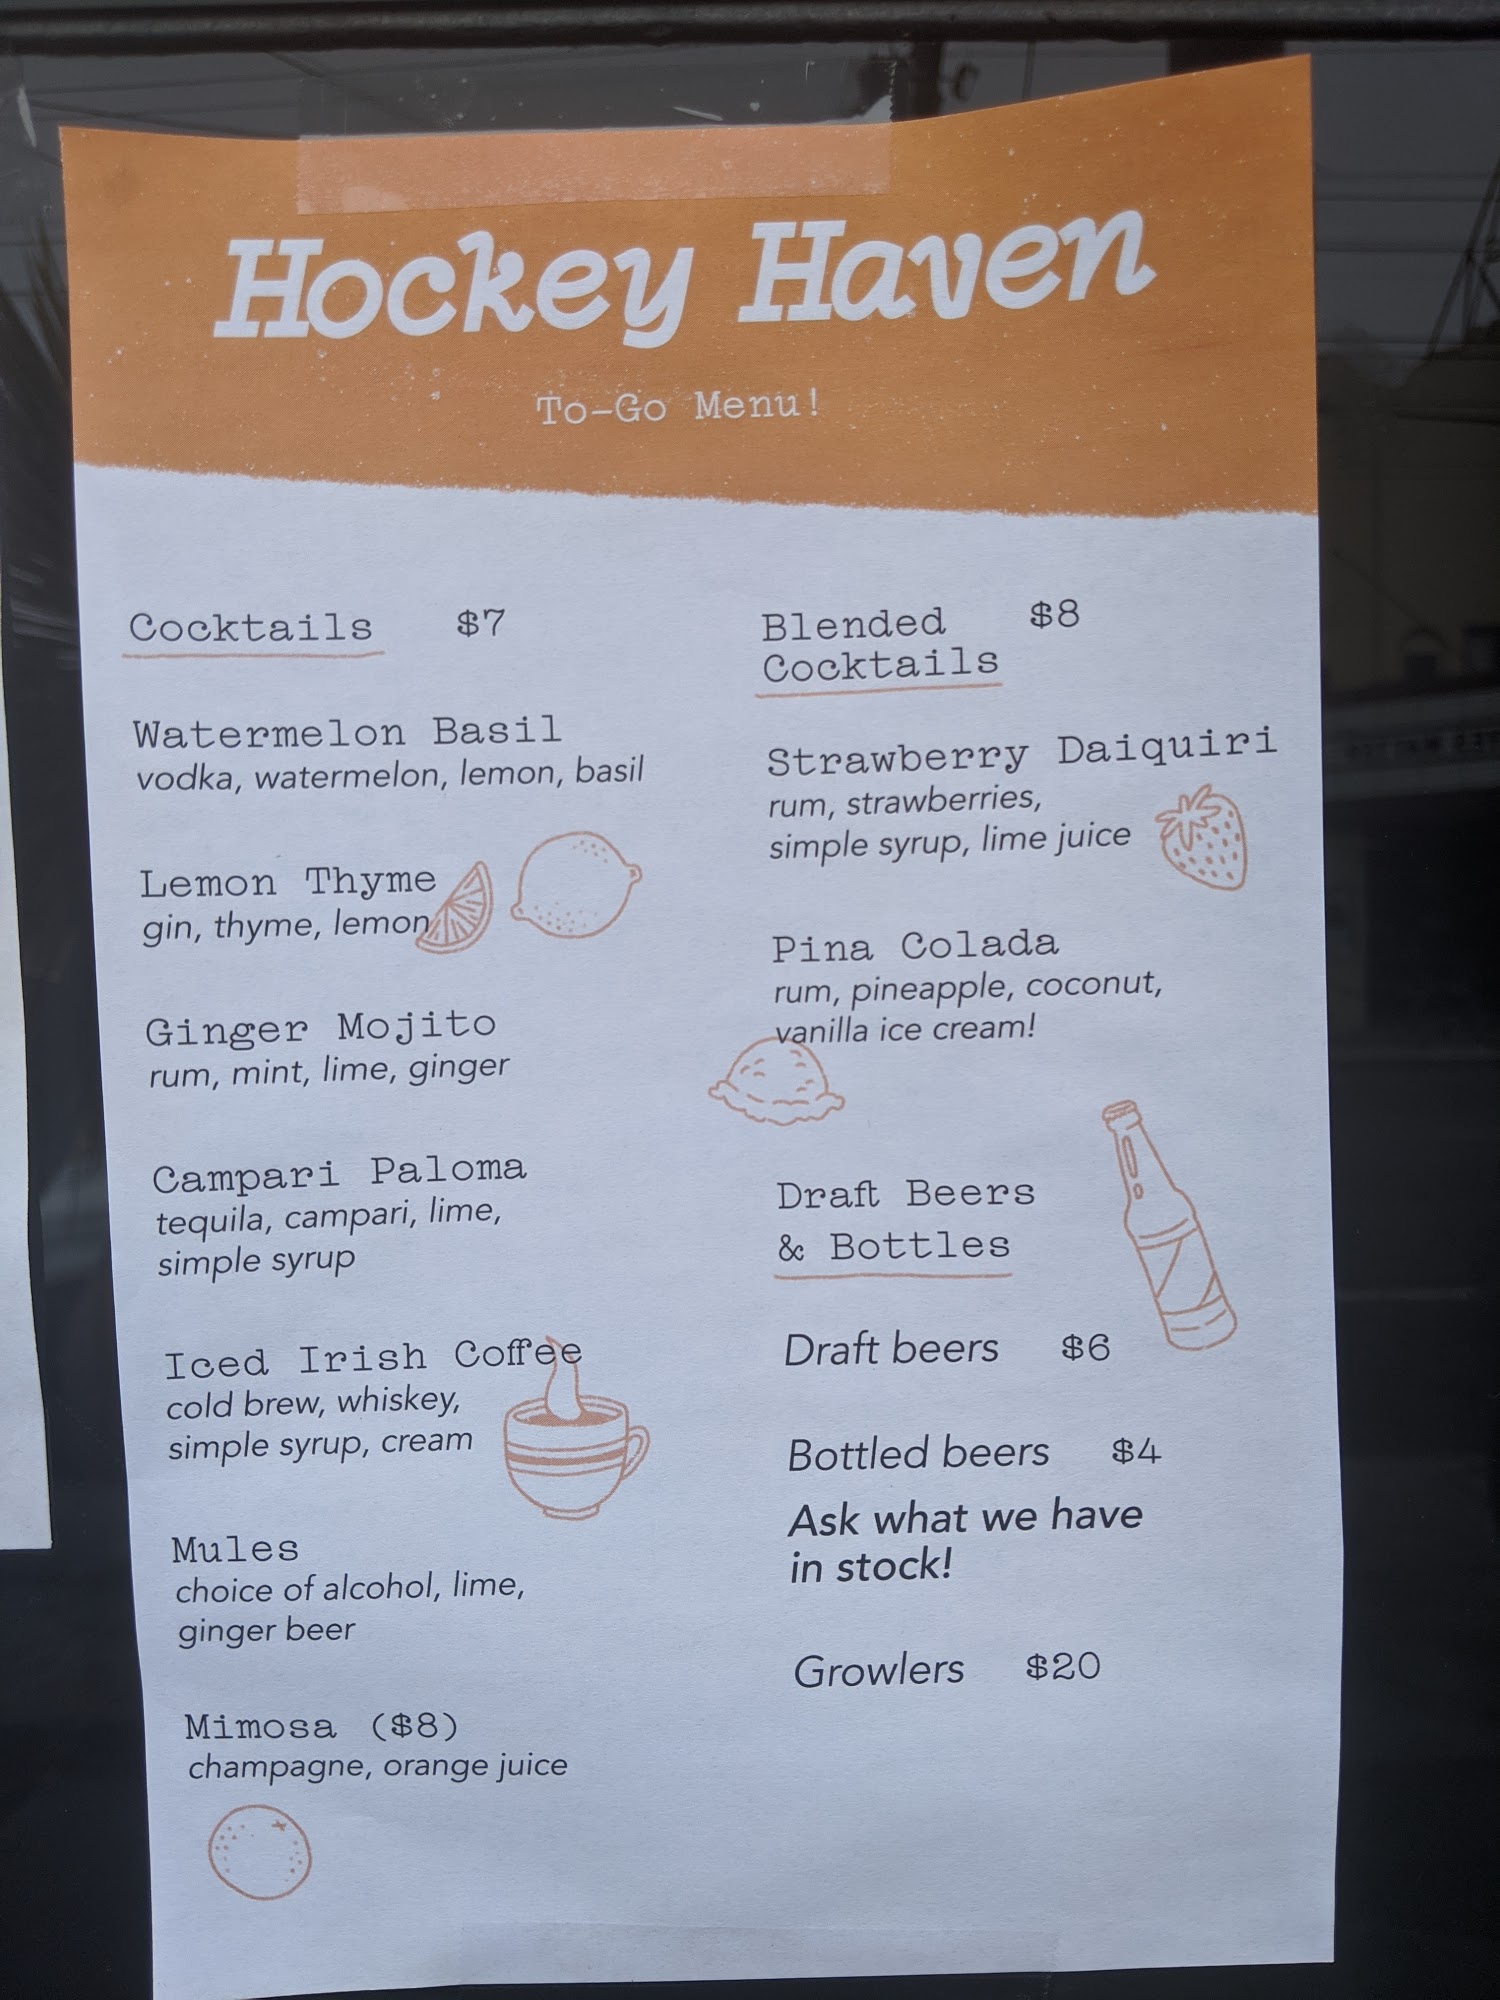 Hockey Haven
To-Go Menu!
Cocktails $7
Watermelon Basil
vodka, watermelon, lemon, basil
Lemon Thyme
gin, thyme, lemon
Ginger Mojito
rum, mint, lime, ginger
Campari Paloma
tequila, campari, lime,
simple syrup
Iced Irish Coffee
cold brew, whiskey,
simple syrup, cream
Mules
choice of alcohol, lime,
ginger beer
Mimosa ($8)
champagne, orange juice
Blended $8
Cocktails
Strawberry Daiquiri
rum, strawberries,
simple syrup, lime juice
Pina Colada
rum, pineapple, coconut,
vanilla ice cream!
Draft Beers
& Bottles
Draft beers $6
Bottled beers $4
Ask what we have
in stock!
Growlers $20